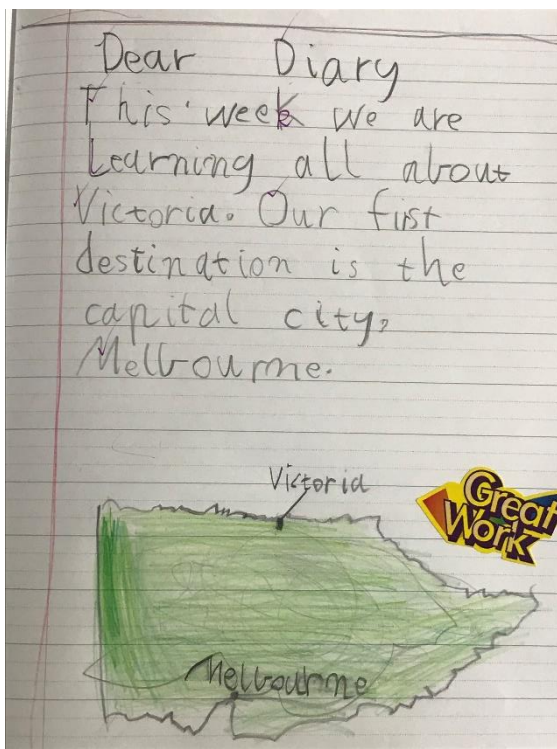 Dear Diary
This week we are
Learning all about
Victoria. Our first
destination is the
capital city,
Melbourne.
Victoria
Great
Work
Melbourne